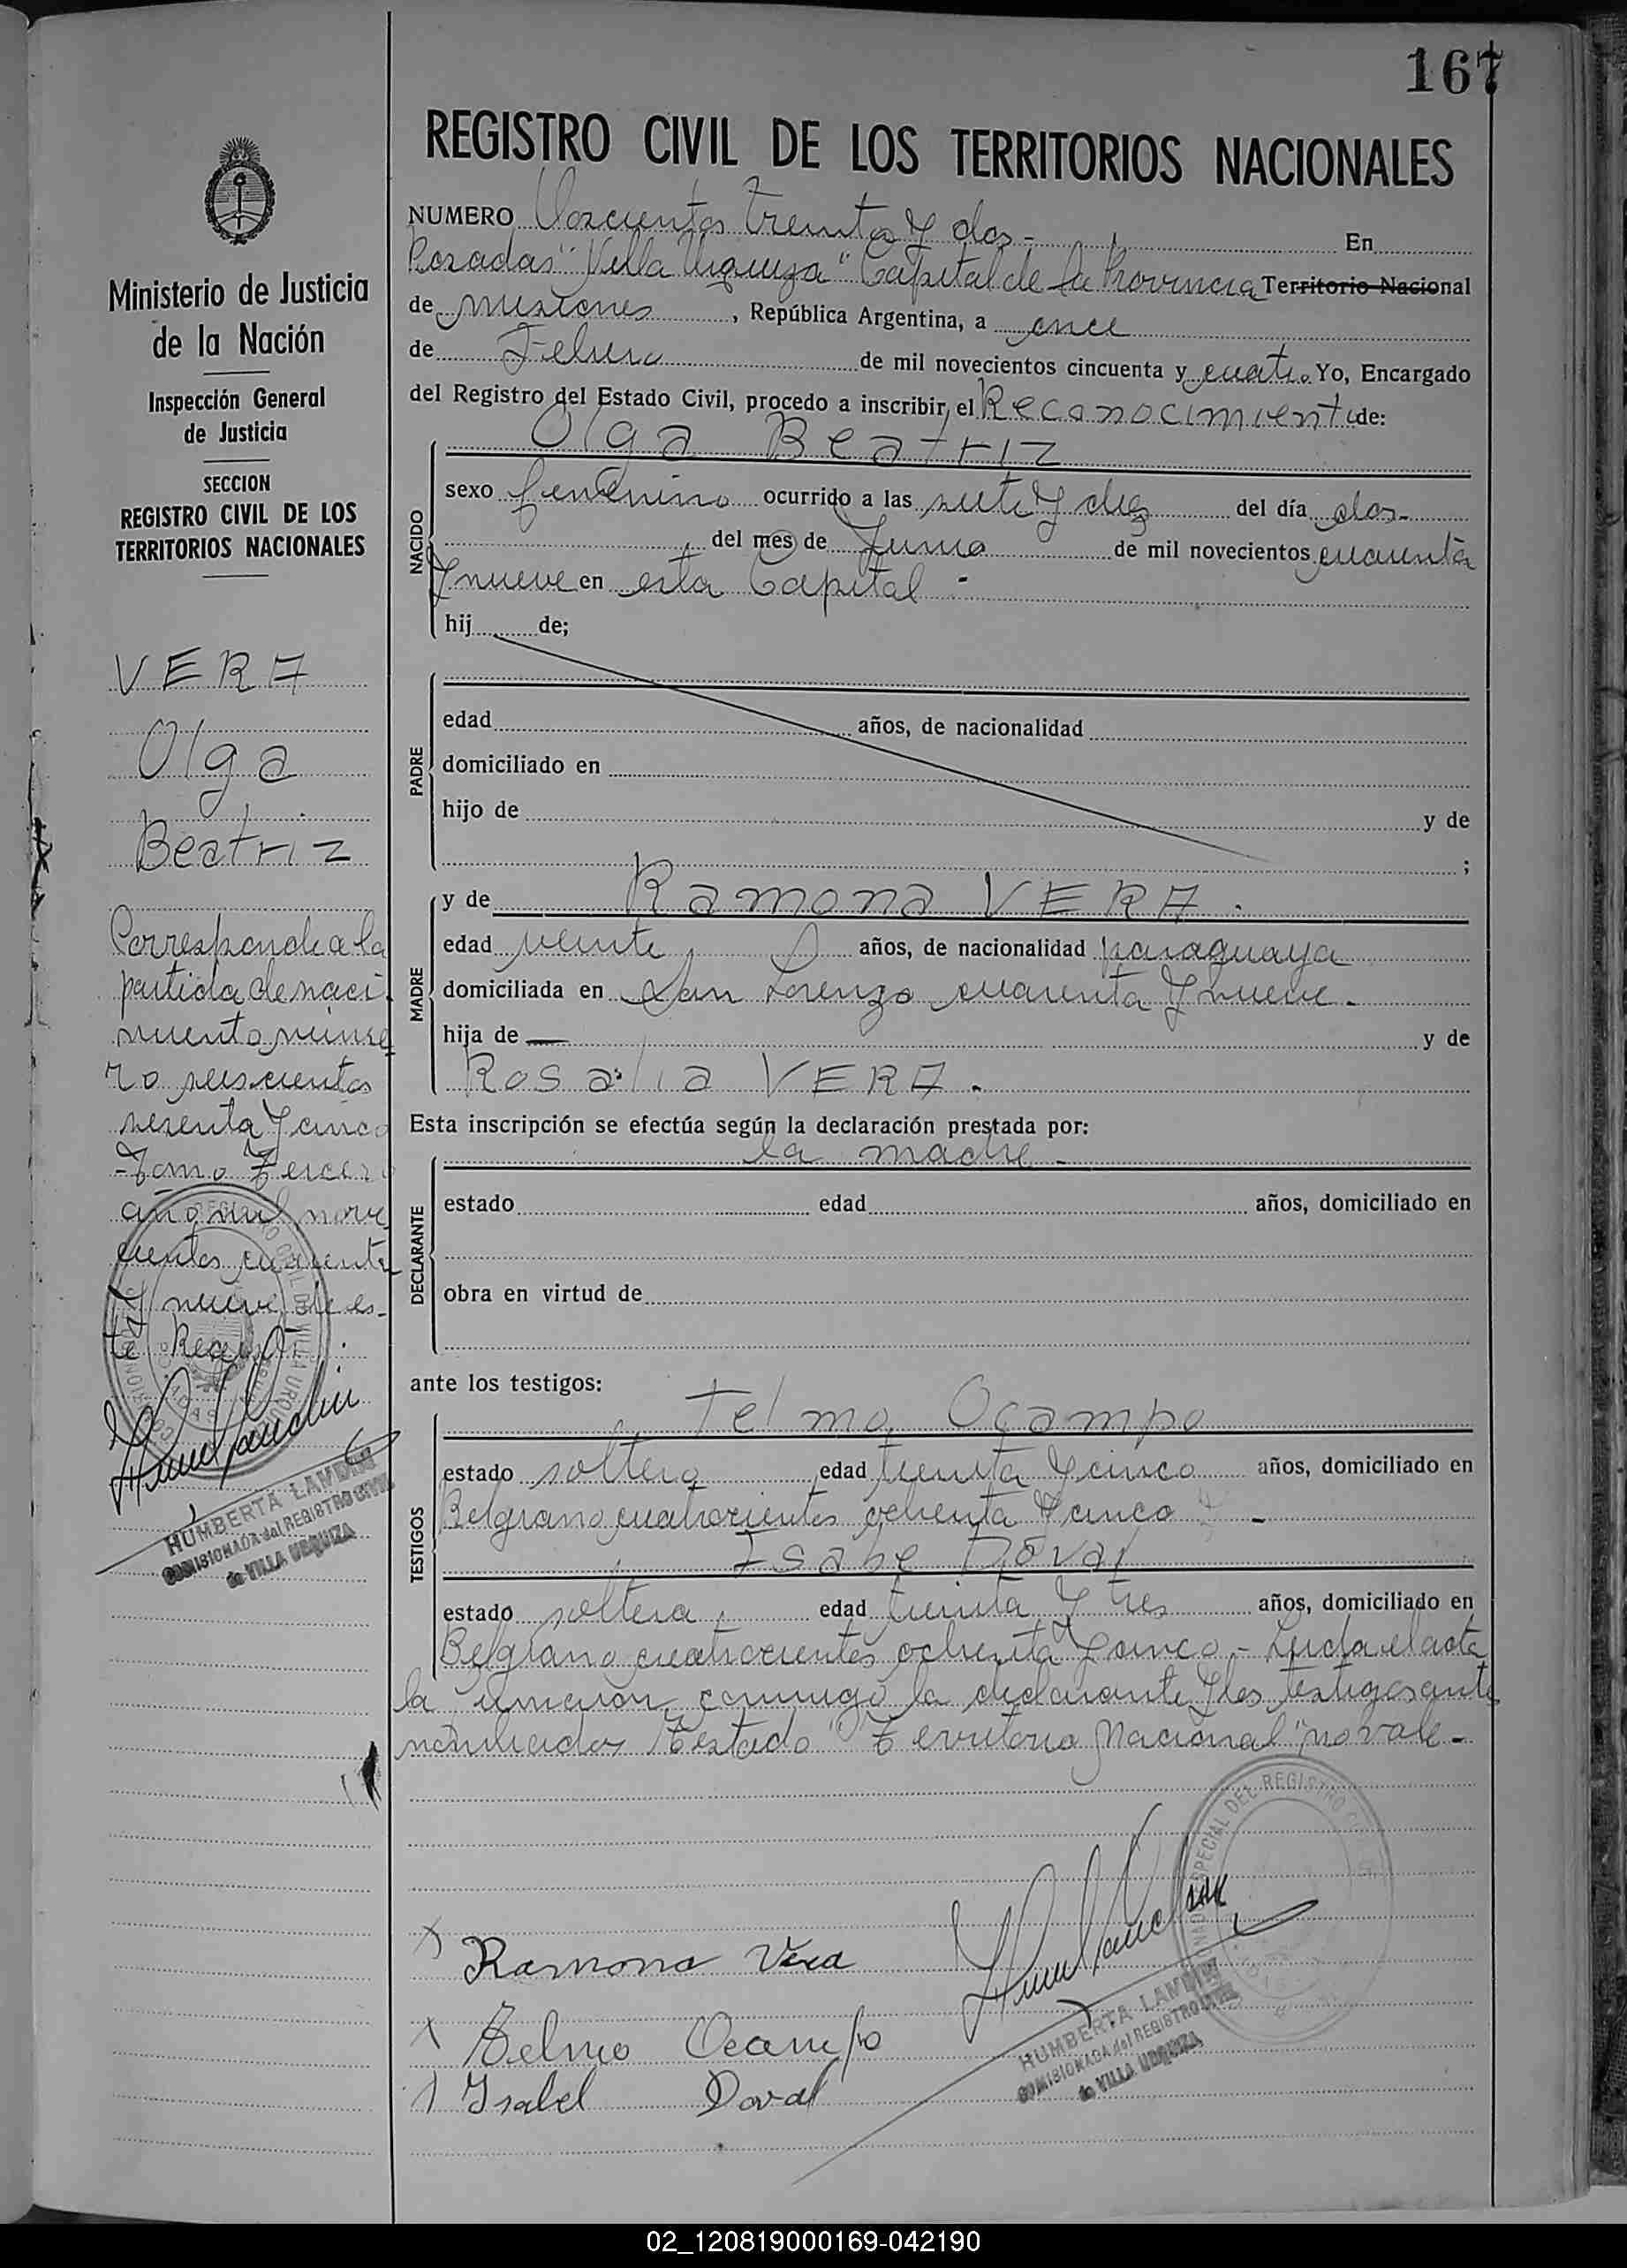 167
REGISTRO CIVIL DE LOS TERRITORIOS NACIONALES
NUMERO Doscientos treinta y dos - En
Posadas "Villa Urquiza" Capital de la Provincia Territorio Nacional
de Misiones, República Argentina, a once
de Febrero de mil novecientos cincuenta y cuatro Yo, Encargado
del Registro del Estado Civil, procedo a inscribir el Reconocimiento de:
Olga Beatriz
NACIDO
sexo femenino ocurrido a las siete y diez del día dos-
del mes de Junio de mil novecientos cuarenta
y nueve en esta Capital -
hij de;
PADRE
edad años, de nacionalidad
domiciliado en
hijo de y de
;
y de Ramona VERA.
MADRE
edad veinte años, de nacionalidad paraguaya
domiciliada en San Lorenzo cuarenta y nueve.
hija de — y de
Rosalia VERA.
Esta inscripción se efectúa según la declaración prestada por:
la madre-
DECLARANTE
estado edad años, domiciliado en
obra en virtud de
ante los testigos:
Telmo Ocampo
TESTIGOS
estado soltero edad treinta y cinco años, domiciliado en
Belgrano cuatrocientos ochenta y cinco -
Isabel Doval
estado soltera edad treinta y tres años, domiciliado en
Belgrano cuatrocientos ochenta y cinco.- Leida el acta
la firmaron conmigo la declarante y los testigos ante
nombrados Testado "Territorio Nacional" no vale-
Ramona Vera
Telmo Ocampo
Isabel Doval
HUMBERTA LANDIN
COMISIONADA del REGISTRO CIVIL
de VILLA URQUIZA
Ministerio de Justicia
de la Nación
Inspección General
de Justicia
SECCION
REGISTRO CIVIL DE LOS
TERRITORIOS NACIONALES
VERA
Olga
Beatriz
Corresponde a la
partida de naci
miento núme
ro seiscientos
sesenta y cinco
-Tomo Tercero
año mil nove
cientos cuarenta
y nueve de es-
te Registro.
HUMBERTA LANDIN
COMISIONADA del REGISTRO CIVIL
de VILLA URQUIZA
02_120819000169-042190